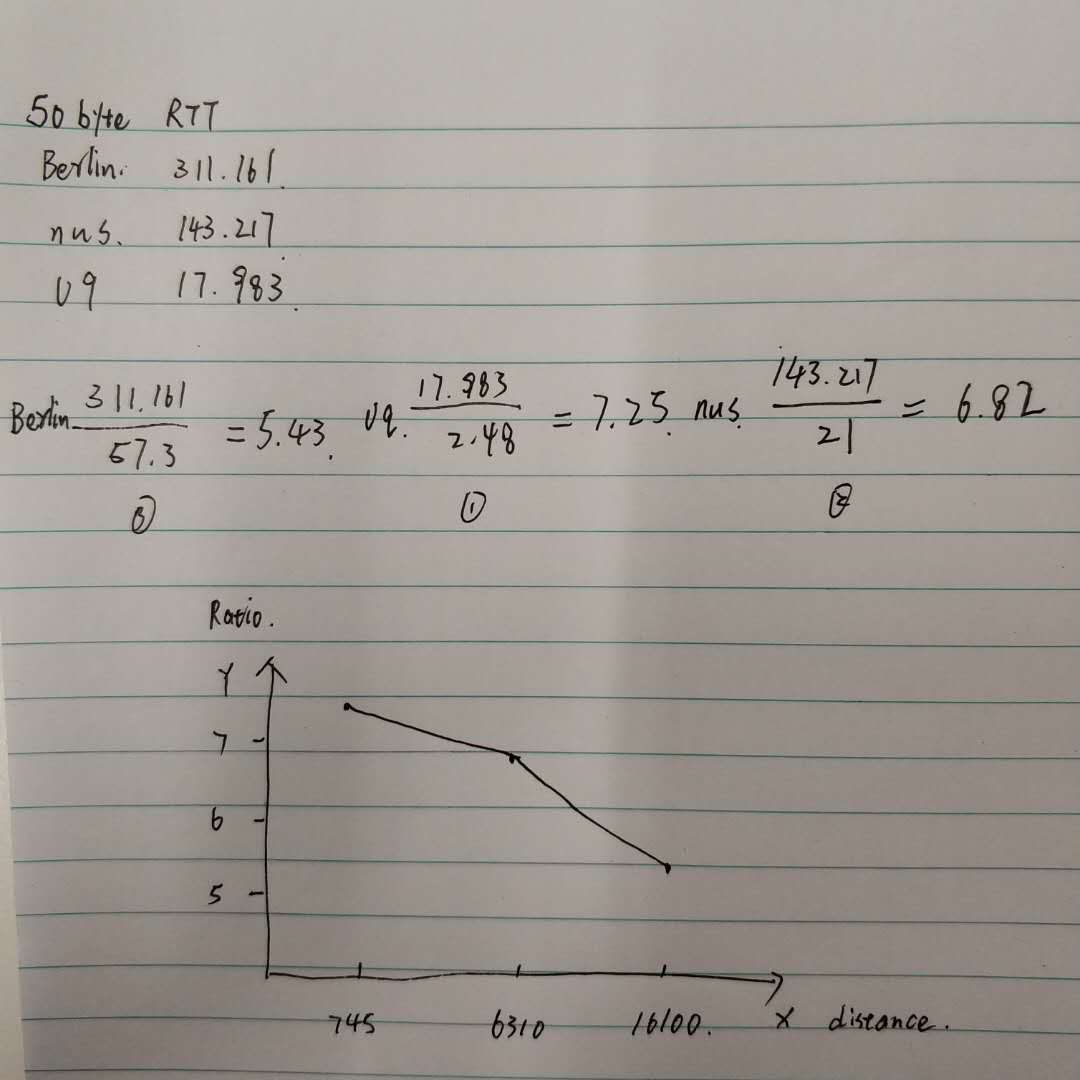 50 byte RTT
Berlin. 311.161.
nus. 143.217
Uq 17.983.
Berlin 311.161/57.3 = 5.43. Uq. 17.983/2.48 = 7.25. nus. 143.217/21 = 6.82
③ ① ②
Ratio.
Y
7
6
5
745 6310 16100. X distance.